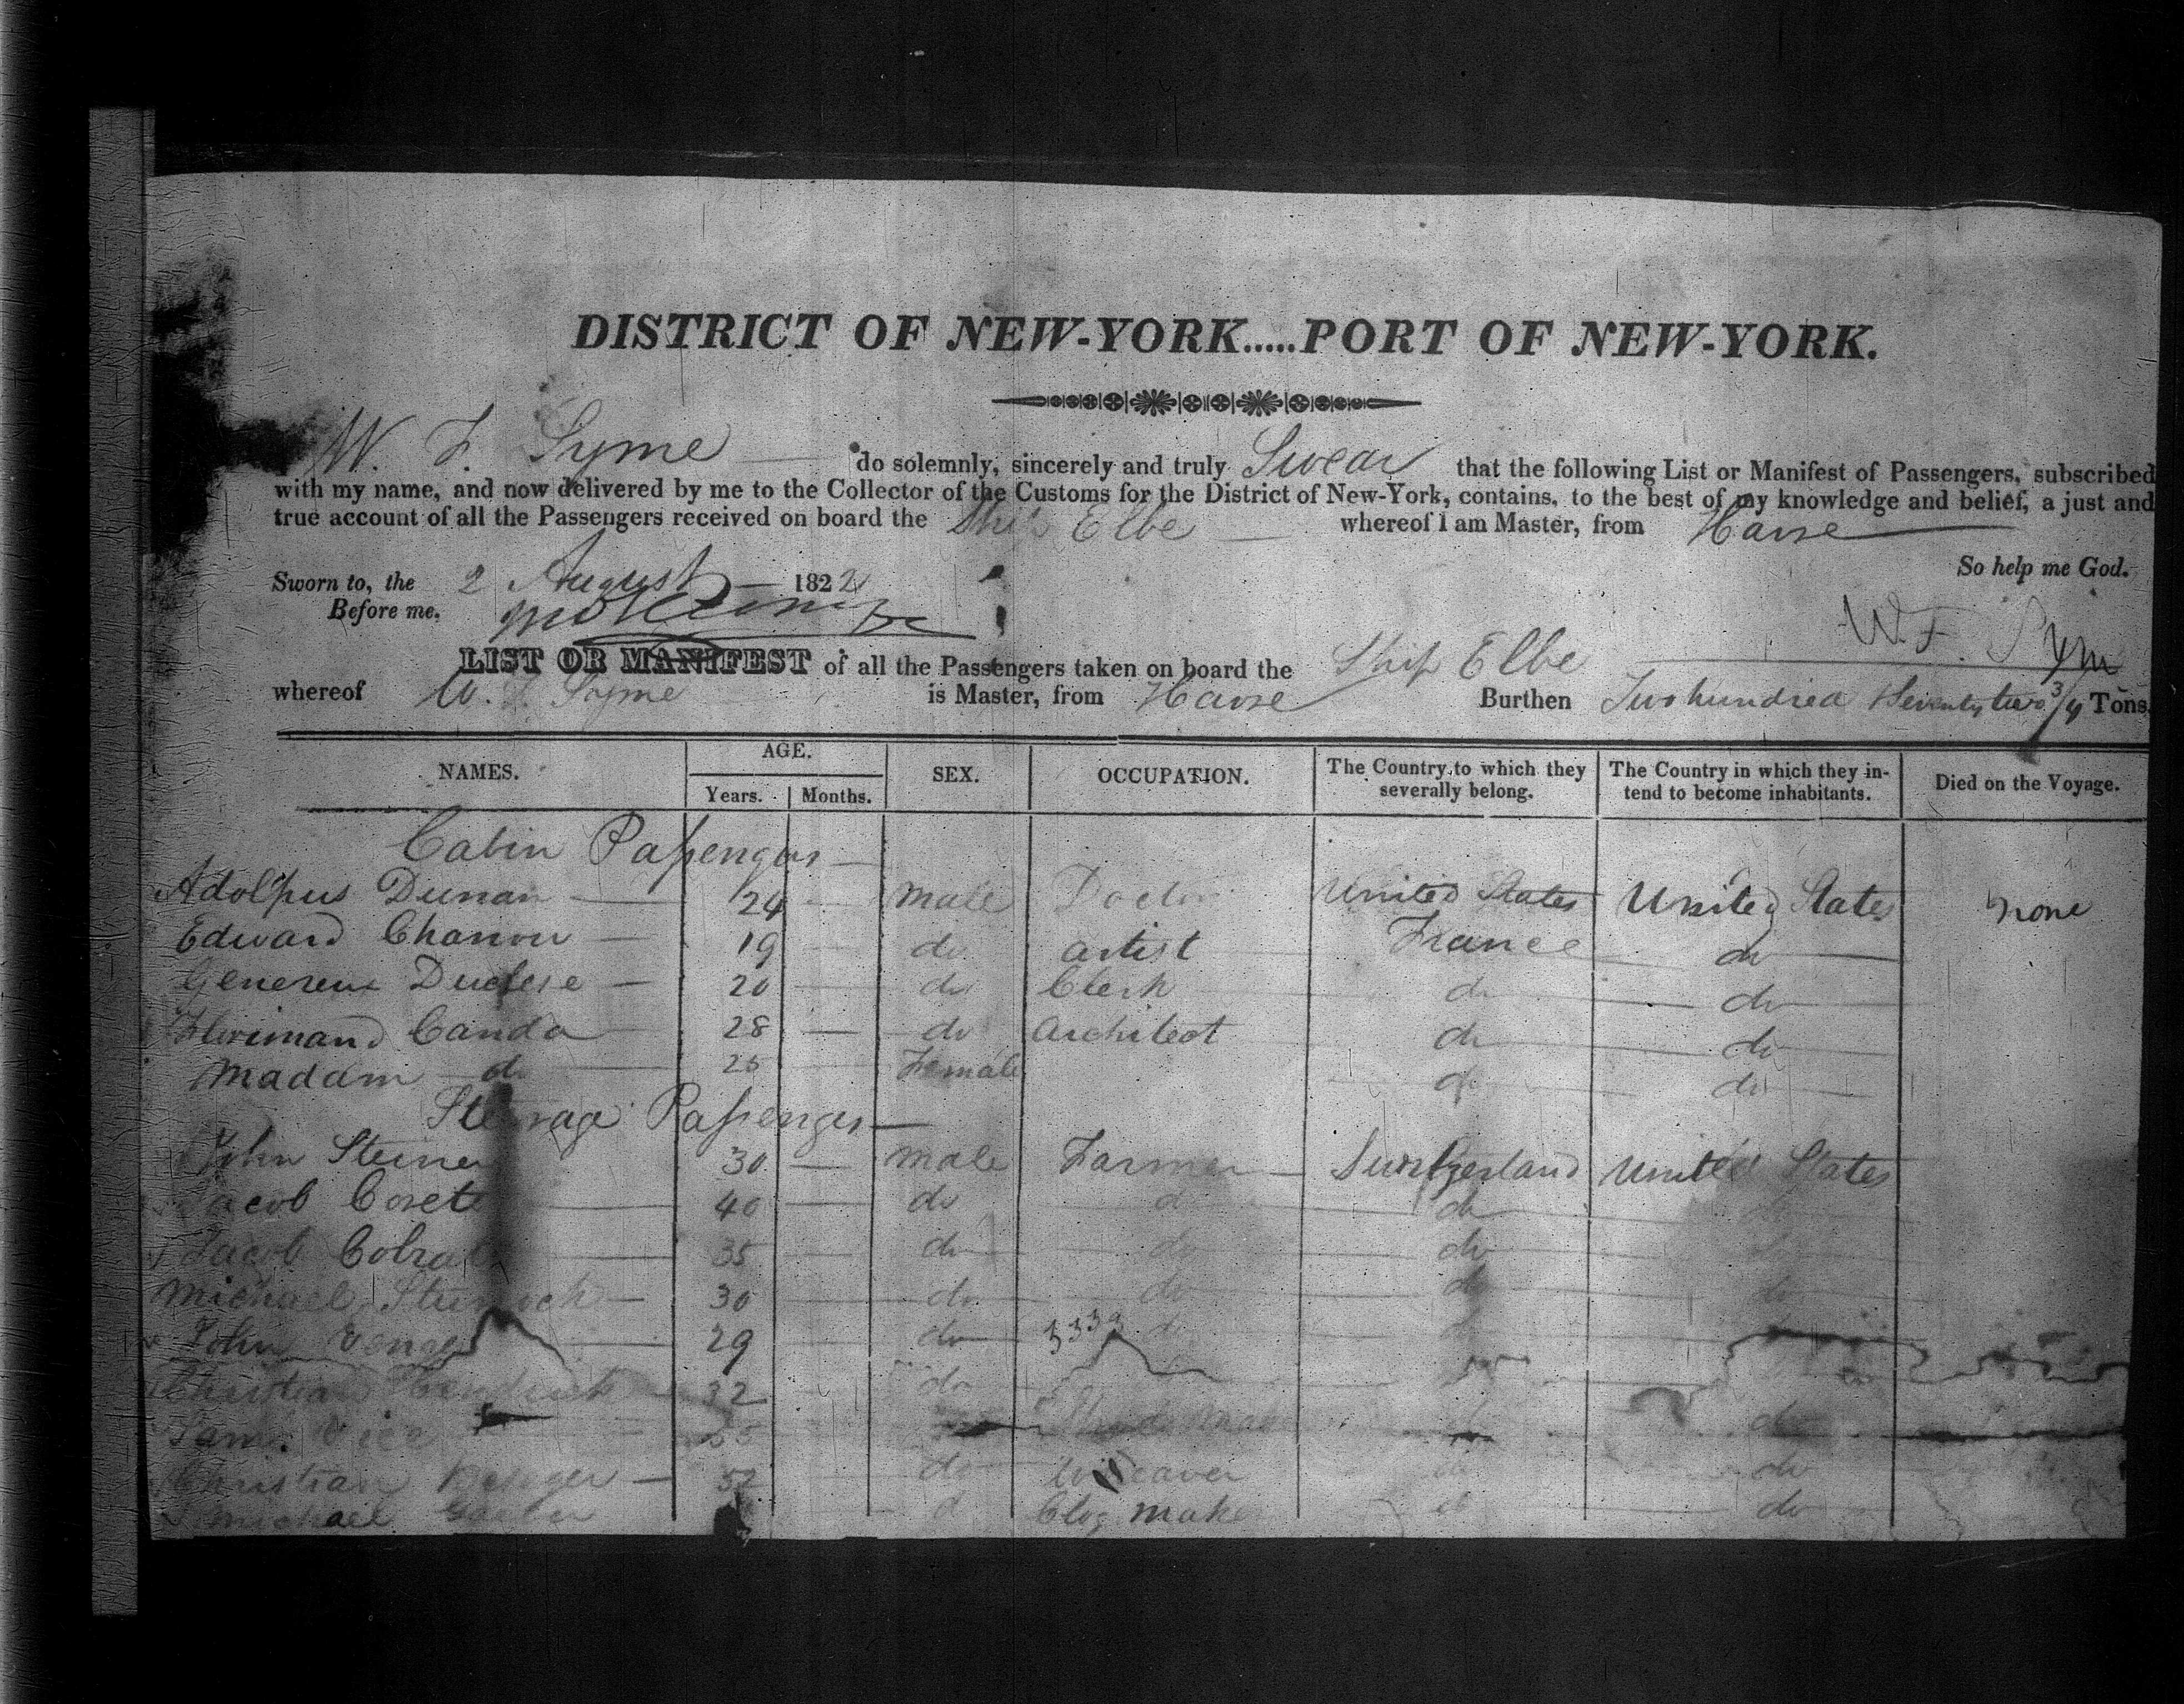 DISTRICT OF NEW-YORK.....PORT OF NEW-YORK.
W. F. Syme do solemnly, sincerely and truly Swear that the following List or Manifest of Passengers, subscribed
with my name, and now delivered by me to the Collector of the Customs for the District of New-York, contains, to the best of my knowledge and belief, a just and
true account of all the Passengers received on board the Ship Elbe whereof I am Master, from Havre
So help me God.
Sworn to, the 2 August 1822
Before me.
W. F. Sym
LIST OR MANIFEST of all the Passengers taken on board the Ship Elbe
whereof W. F. Syme is Master, from Havre Burthen Two hundred Seventy two 3/4 Tons.
NAMES. AGE. SEX. OCCUPATION. The Country to which they severally belong. The Country in which they intend to become inhabitants. Died on the Voyage.
Years. Months.
Cabin Passengers
Adolpus Dunan 24 male Doctor United States United States none
Edward Chanou 19 do artist France do
Duclese 20 do Clerk do do
Canda 28 do Architect do do
Madam do 25 Female do do
Steerage Passenger
John Steiner 30 male Farmer Switzerland United States
Jacob 40 do do do do
Jacob 35 do do do do
Michael 30 do do do do
John 29 do 3333 do
Christian 32 do
Sam. Vice do do
Christian 52 do Weaver do do
Michael Clog Maker do do